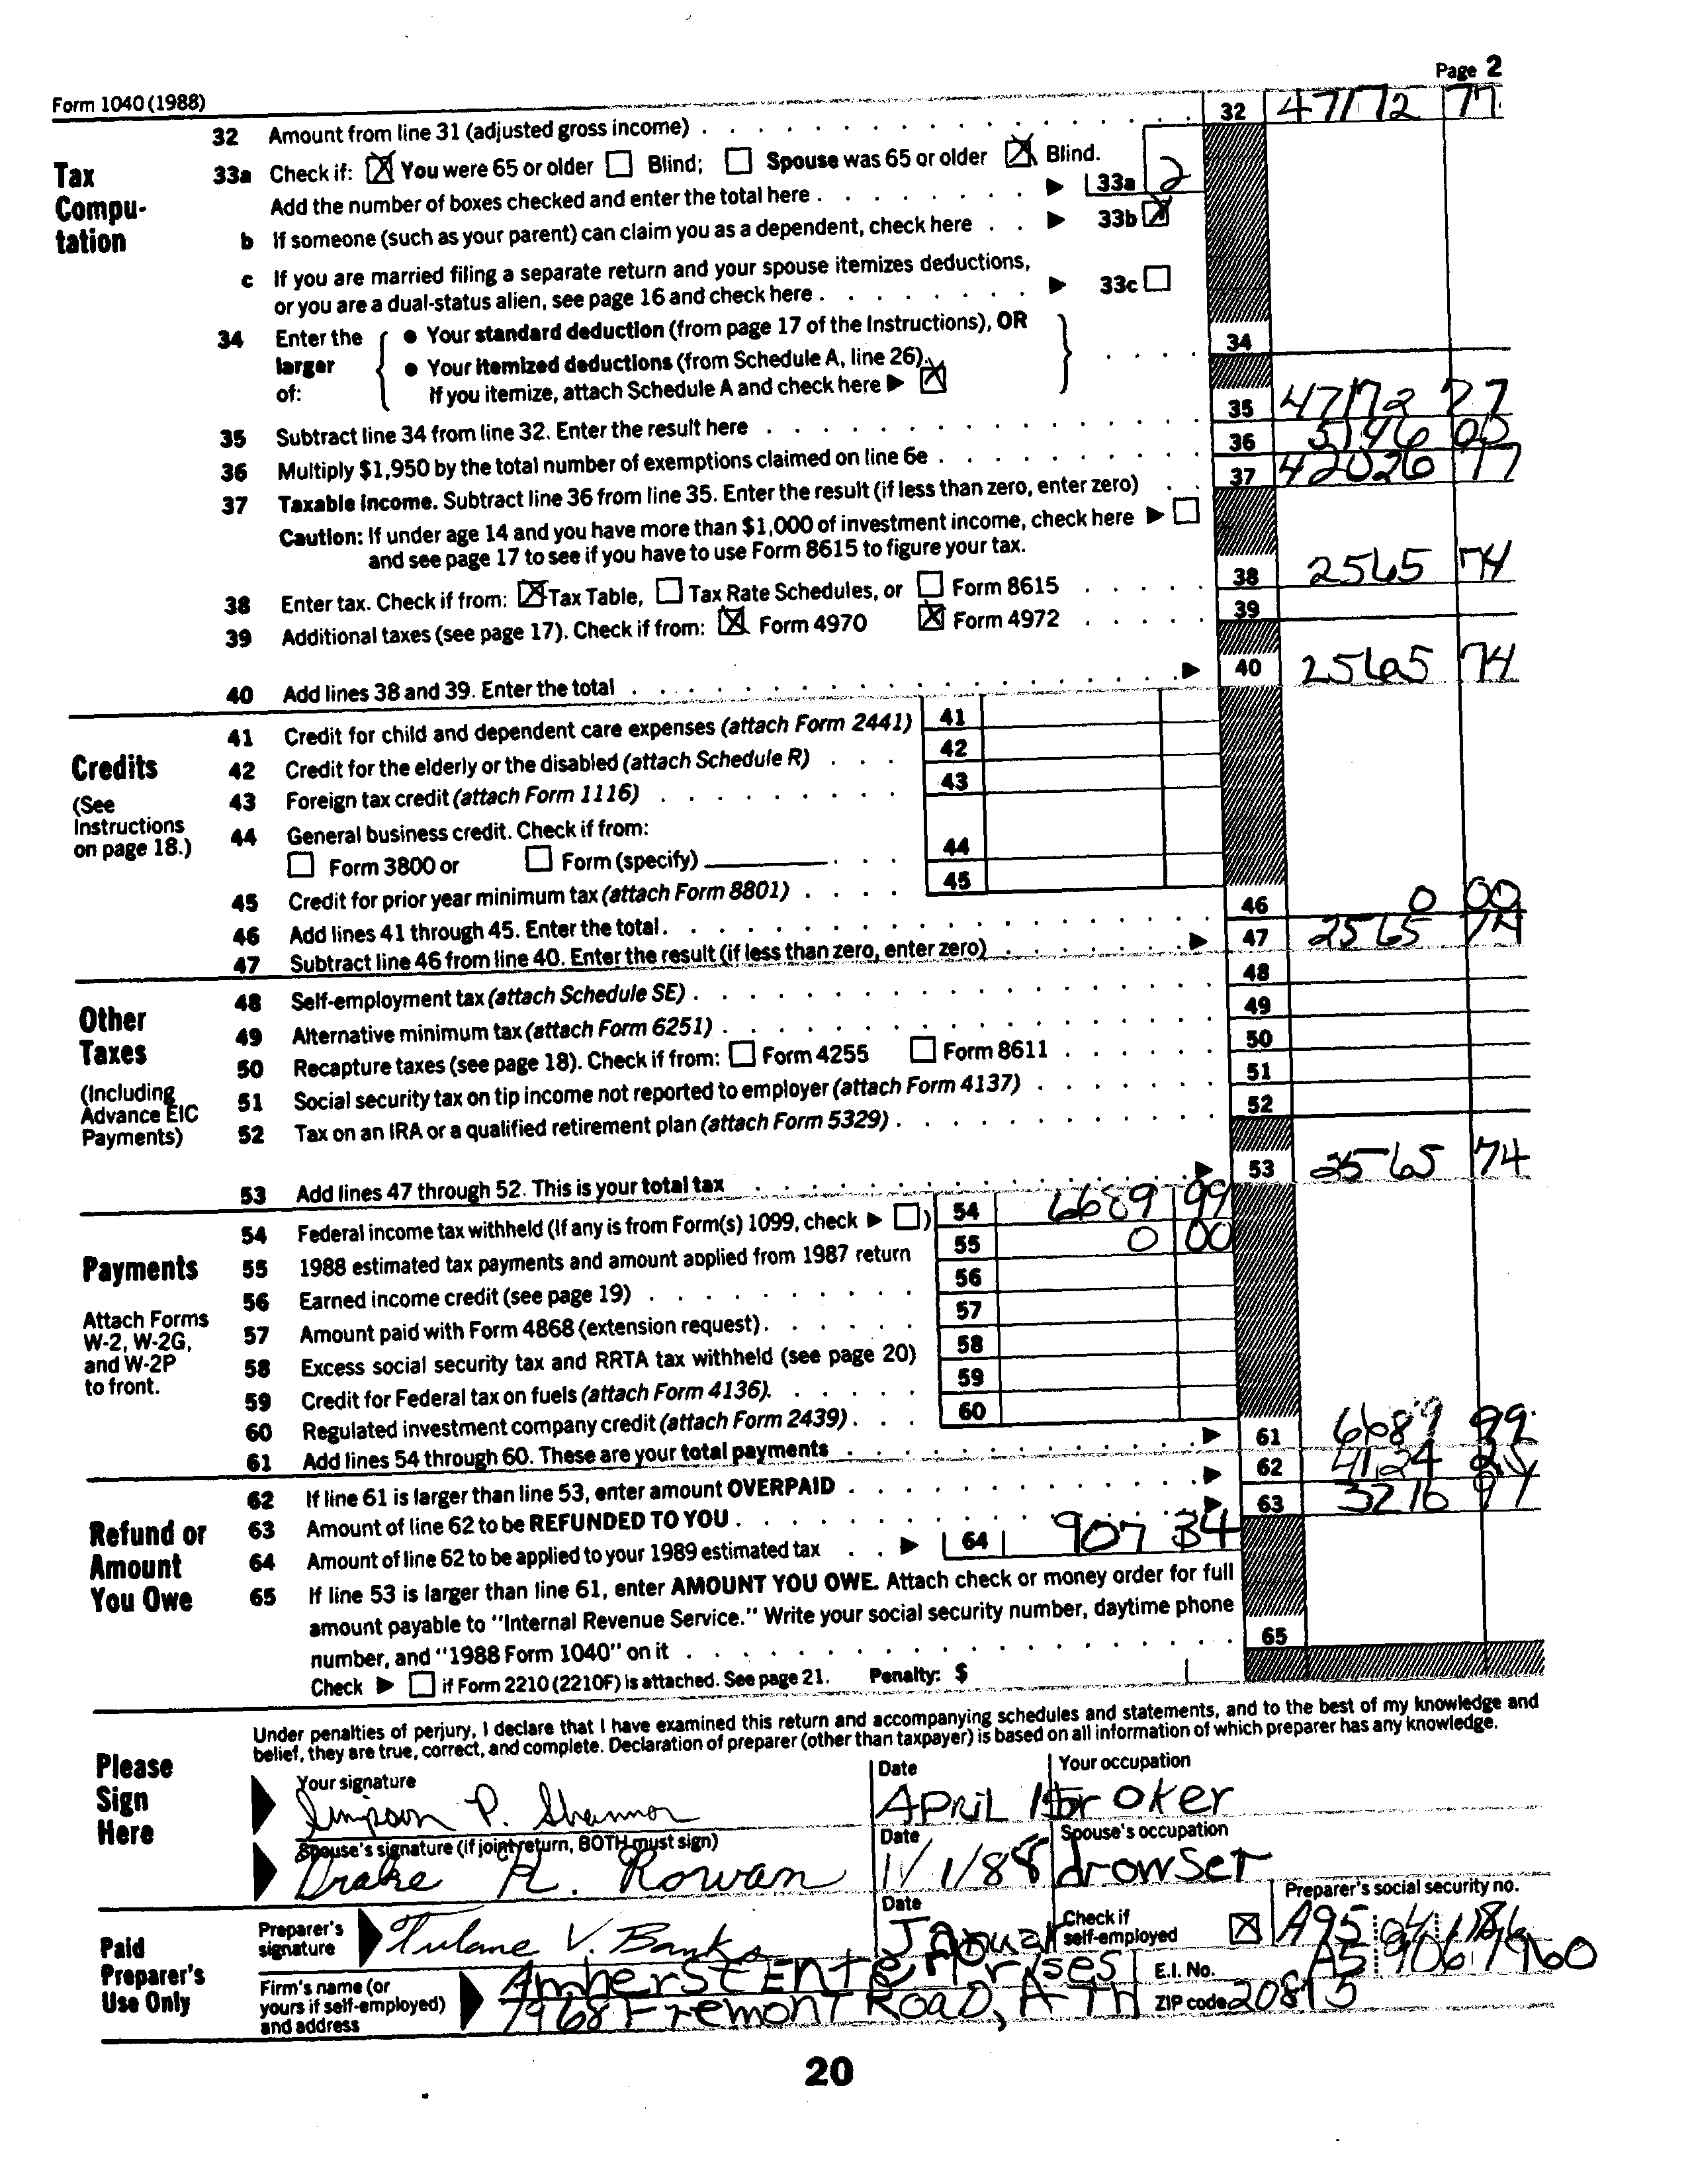 Form 1040 (1988)
Page 2
Tax Compu-tation
32 Amount from line 31 (adjusted gross income) 32 47172 77
33a Check if: ☒ You were 65 or older ☐ Blind; ☐ Spouse was 65 or older ☒ Blind.
Add the number of boxes checked and enter the total here ▶ 33a 2
b If someone (such as your parent) can claim you as a dependent, check here ▶ 33b ☒
c If you are married filing a separate return and your spouse itemizes deductions,
or you are a dual-status alien, see page 16 and check here ▶ 33c ☐
34 Enter the larger of:
● Your standard deduction (from page 17 of the Instructions), OR
● Your itemized deductions (from Schedule A, line 26).
If you itemize, attach Schedule A and check here ▶ ☒
34
35 Subtract line 34 from line 32. Enter the result here 35 47172 77
36 Multiply $1,950 by the total number of exemptions claimed on line 6e 36 5146 00
37 Taxable income. Subtract line 36 from line 35. Enter the result (if less than zero, enter zero) 37 42026 77
Caution: If under age 14 and you have more than $1,000 of investment income, check here ▶ ☐
and see page 17 to see if you have to use Form 8615 to figure your tax.
38 Enter tax. Check if from: ☒ Tax Table, ☐ Tax Rate Schedules, or ☐ Form 8615 38 2565 74
39 Additional taxes (see page 17). Check if from: ☒ Form 4970 ☒ Form 4972 39
40 Add lines 38 and 39. Enter the total ▶ 40 2565 74
Credits
(See Instructions on page 18.)
41 Credit for child and dependent care expenses (attach Form 2441) 41
42 Credit for the elderly or the disabled (attach Schedule R) 42
43 Foreign tax credit (attach Form 1116) 43
44 General business credit. Check if from:
☐ Form 3800 or ☐ Form (specify) 44
45 Credit for prior year minimum tax (attach Form 8801) 45
46 Add lines 41 through 45. Enter the total 46 0 00
47 Subtract line 46 from line 40. Enter the result (if less than zero, enter zero) ▶ 47 2565 74
Other Taxes
(Including Advance EIC Payments)
48 Self-employment tax (attach Schedule SE) 48
49 Alternative minimum tax (attach Form 6251) 49
50 Recapture taxes (see page 18). Check if from: ☐ Form 4255 ☐ Form 8611 50
51 Social security tax on tip income not reported to employer (attach Form 4137) 51
52 Tax on an IRA or a qualified retirement plan (attach Form 5329) 52
53 Add lines 47 through 52. This is your total tax ▶ 53 2565 74
Payments
Attach Forms W-2, W-2G, and W-2P to front.
54 Federal income tax withheld (If any is from Form(s) 1099, check ▶ ☐) 54 6689 99
55 1988 estimated tax payments and amount applied from 1987 return 55 0 00
56 Earned income credit (see page 19) 56
57 Amount paid with Form 4868 (extension request) 57
58 Excess social security tax and RRTA tax withheld (see page 20) 58
59 Credit for Federal tax on fuels (attach Form 4136) 59
60 Regulated investment company credit (attach Form 2439) 60
61 Add lines 54 through 60. These are your total payments ▶ 61 6689 99
Refund or Amount You Owe
62 If line 61 is larger than line 53, enter amount OVERPAID ▶ 62 4124 25
63 Amount of line 62 to be REFUNDED TO YOU ▶ 63 3216 91
64 Amount of line 62 to be applied to your 1989 estimated tax ▶ 64 907 34
65 If line 53 is larger than line 61, enter AMOUNT YOU OWE. Attach check or money order for full
amount payable to "Internal Revenue Service." Write your social security number, daytime phone
number, and "1988 Form 1040" on it 65
Check ▶ ☐ if Form 2210 (2210F) is attached. See page 21. Penalty: $
Please Sign Here
Under penalties of perjury, I declare that I have examined this return and accompanying schedules and statements, and to the best of my knowledge and
belief, they are true, correct, and complete. Declaration of preparer (other than taxpayer) is based on all information of which preparer has any knowledge.
Your signature Date Your occupation
Simpson P. Shannon APRiL 1 broker
Spouse's signature (if joint return, BOTH must sign) Date Spouse's occupation
Drake R. Rowan 11/1/88 drowser
Paid Preparer's Use Only
Preparer's signature Tulane V. Banks Date Januar Check if self-employed ☒ Preparer's social security no. A95 04 1186
Firm's name (or yours if self-employed) and address Amherst Enterprises E.I. No. A5 9061960
7968 Fremont Road, ATH ZIP code 20815
20